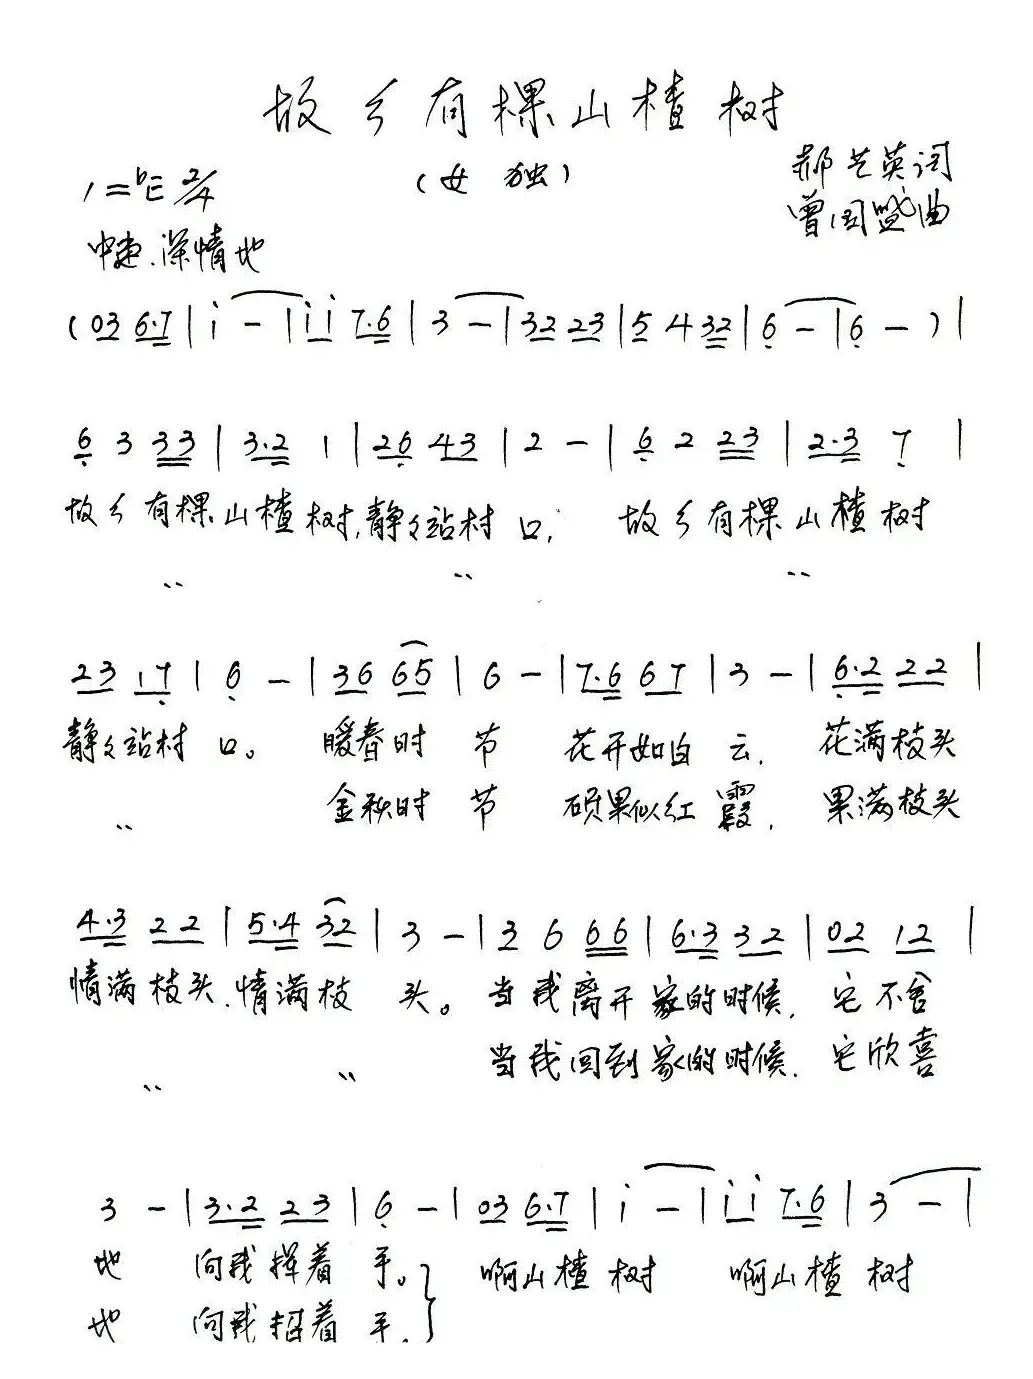 故乡有棵山楂树
(女独)
1=bE 2/4
郝艺英词
曾国盛曲
中速.深情地
(03 6·7 | i - | i i 7·6 | 3 - | 32 23 | 5 4 32 | 6 - | 6 - ) |
6 3 33 | 3·2 1 | 26 43 | 2 - | 6 2 23 | 2·3 7 |
故乡有棵山楂树,静々站村口, 故乡有棵山楂树
〃 〃 〃
23 17 | 6 - | 36 65 | 6 - | 7·6 67 | 3 - | 6·2 22 |
静々站村口。 暖春时节 花开如白云, 花满枝头
〃 金秋时节 硕果似红霞, 果满枝头
4·3 22 | 5·4 32 | 3 - | 3 6 66 | 6·3 32 | 02 12 |
情满枝头,情满枝头。当我离开家的时候, 它不舍
〃 〃 当我回到家的时候, 它欣喜
3 - | 3·2 23 | 6 - | 03 6·7 | i - | i i 7·6 | 3 - |
地 向我挥着手。 啊山楂树 啊山楂树
地 向我招着手.